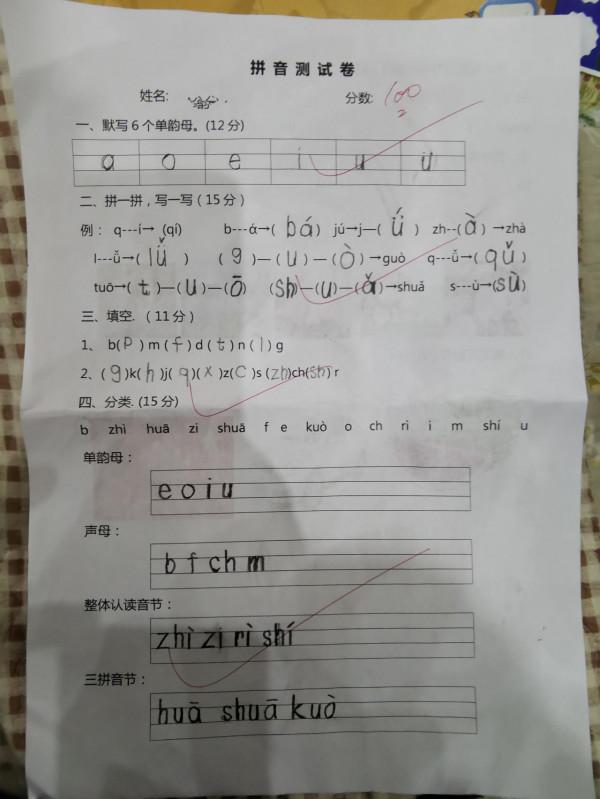 拼音测试卷
姓名: 分数: 100
一、默写6个单韵母。(12分)
a o e i u ü
二、拼一拼，写一写(15分)
例： q---í→ (qí) b---á→( bá ) jú→j—( ǘ ) zh--( à ) →zhà
l---ǚ→( lǚ ) ( g )—( u ) —( ò )→guò q---ǚ→( qǔ )
tuō→( t )—( u )—( ō ) ( sh )—( u )—( ǎ )→shuǎ s---ù→( sù )
三、填空. （11分）
1、 b( p ) m ( f ) d ( t ) n ( l ) g
2、( g )k( h )j( q )( x )z( c )s ( zh )ch( sh ) r
四、分类. (15分)
b zhì huā zi shuā f e kuò o ch rì i m shí u
单韵母：
e o i u
声母：
b f ch m
整体认读音节：
zhì zi rì shí
三拼音节：
huā shuā kuò